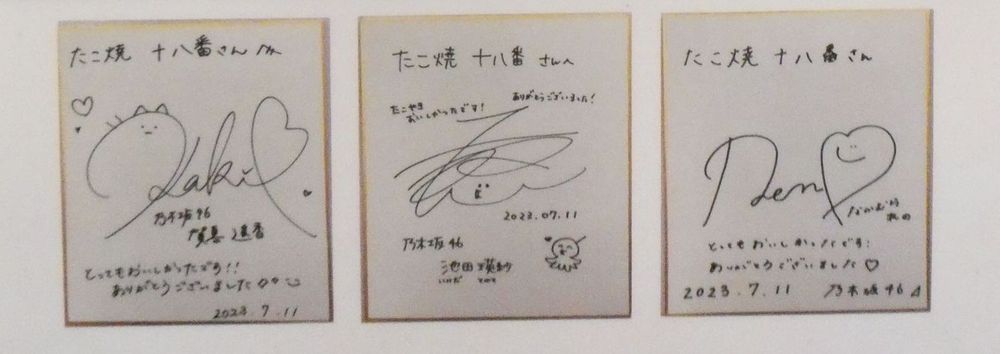 たこ焼 十八番さんへ
Kaki
乃木坂46
賀喜 遥香
とってもおいしかったです!!
ありがとうございました
2023.7.11
たこ焼 十八番 さんへ
たこやき
おいしかったです!
ありがとうございました!
2023.07.11
乃木坂46
池田 瑛紗
いけだ てれさ
たこ焼 十八番 さん
Reno
なかむられの
とってもおいしかったです!
ありがとうございました♡
2023.7.11 乃木坂46